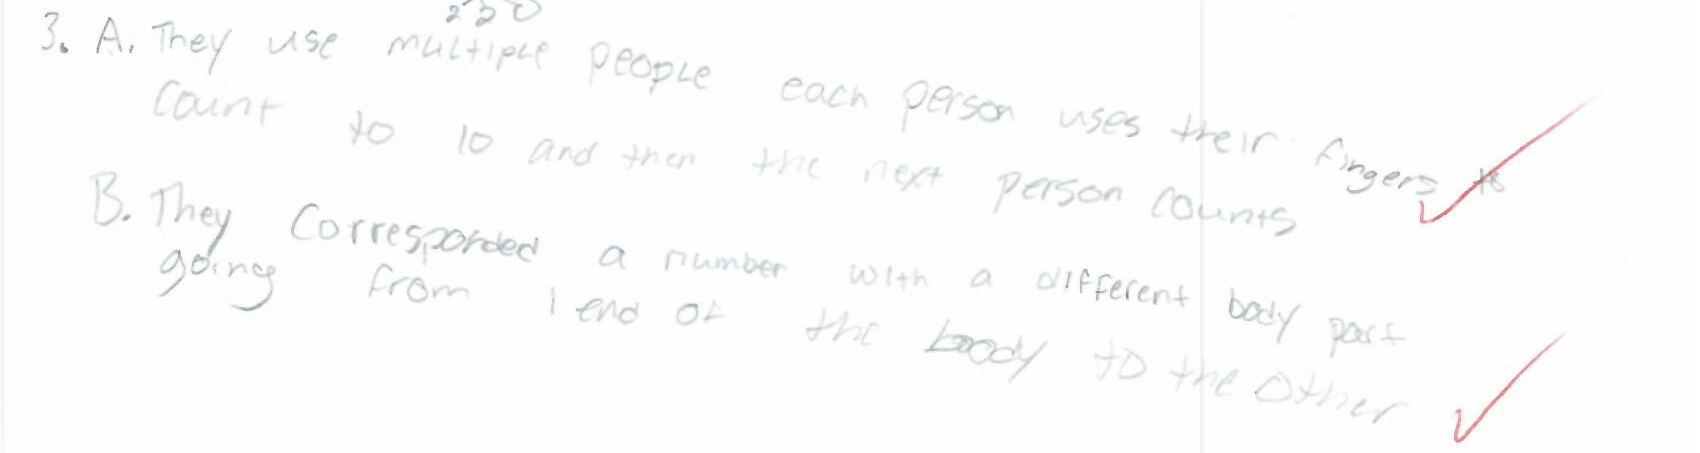 220
3. A. They use multiple people each person uses their fingers to
count to 10 and then the next person counts
B. They corresponded a number with a different body part
going from 1 end of the body to the other